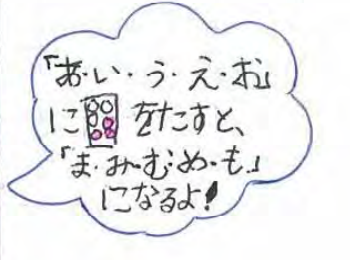 「あ・い・う・え・お」
に をたすと、
「ま・み・む・め・も」
になるよ!